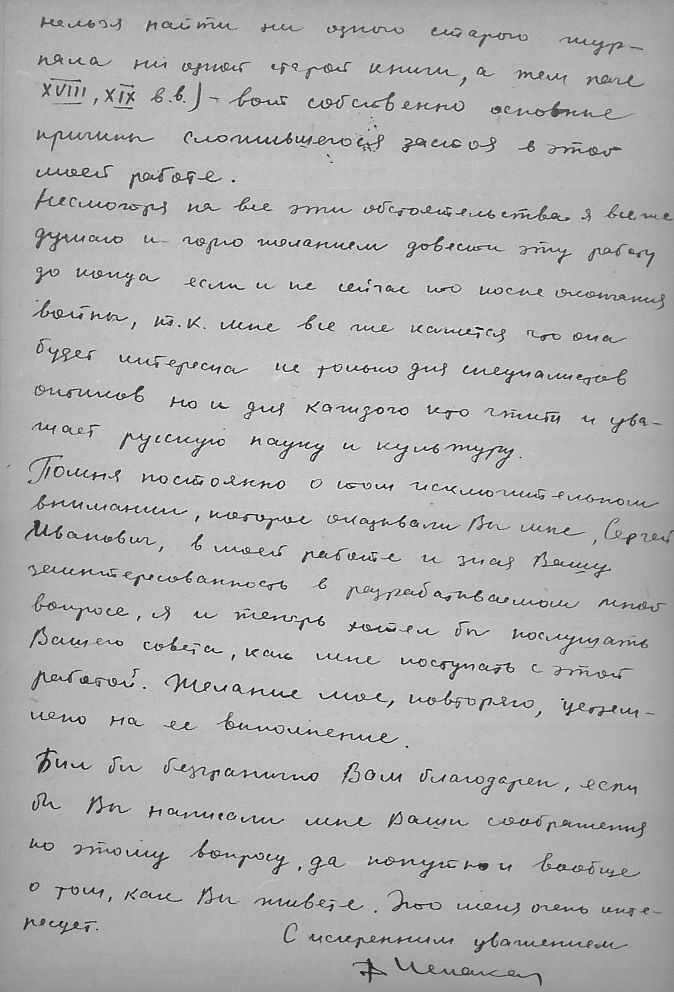 нельзя найти ни одного старого жур-
нала ни одной старой книги, а тем паче
XVIII, XIX в.в.) – вот собственно основные
причины сложившегося застоя в этой
моей работе.
Несмотря на все эти обстоятельства я все же
думаю и горю желанием довести эту работу
до конца если и не сейчас то после окончания
войны, т.к. мне все же кажется что она
будет интересна не только для специалистов
оптиков но и для каждого кто чтит и ува-
жает русскую науку и культуру.
Помня постоянно о том исключительном
внимании, которое оказывали Вы мне, Сергей
Иванович, в моей работе и зная Вашу
заинтересованность в разрабатываемом мной
вопросе, я и теперь хотел бы послушать
Вашего совета, как мне поступать с этой
работой. Желание мое, повторяю, устрем-
лено на ее выполнение.
Был бы безгранично Вам благодарен, если
бы Вы написали мне Ваши соображения
по этому вопросу, да попутно и вообще
о том, как Вы живете. Это меня очень инте-
ресует.
С искренним уважением